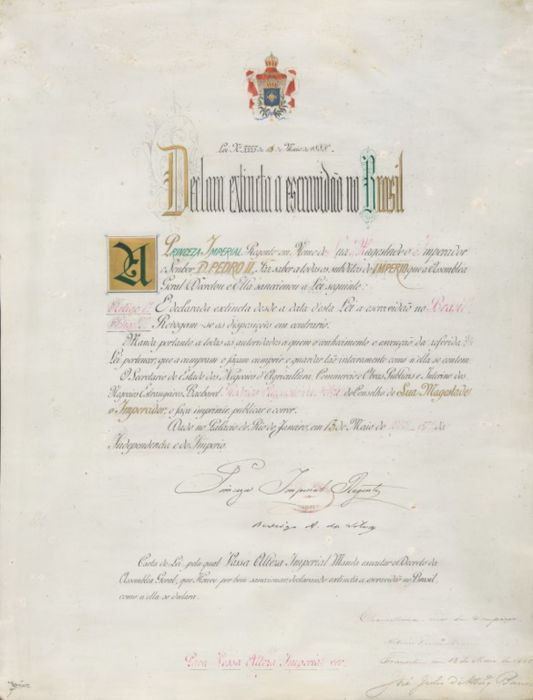 Lei Nº 3353 de 13 de Maio de 1888.
Declara extincta a escravidão no Brasil
A PRINCEZA IMPERIAL Regente em Nome de Sua Magestade o Imperador
o Senhor D. PEDRO II, Faz saber a todos os subditos do IMPERIO que a Assembléa
Geral Decretou e Ella sanccionou a Lei seguinte:
Artigo 1º É declarada extincta desde a data d'esta Lei a escravidão no Brasil.
Artigo 2º Revogam-se as disposições em contrario.
Manda portanto a todas as autoridades a quem o conhecimento e execução da referida
Lei pertencer, que a cumpram e façam cumprir e guardar tão inteiramente como n'ella se contem.
O Secretario de Estado dos Negocios d'Agricultura, Commercio e Obras Publicas e Interino dos
Negocios Estrangeiros, Bacharel do Conselho de Sua Magestade
o Imperador, o faça imprimir, publicar e correr.
Dado no Palacio do Rio de Janeiro, em 13 de Maio de 1888, 67º da
Independencia e do Imperio.
Princeza Imperial Regente
Rodrigo A. da Silva
Carta de Lei, pela qual Vossa Alteza Imperial Manda executar o Decreto da
Assembléa Geral, que Houve por bem sanccionar declarando extincta a escravidão no Brasil,
como n'ella se declara.
Para Vossa Alteza Imperial ver.